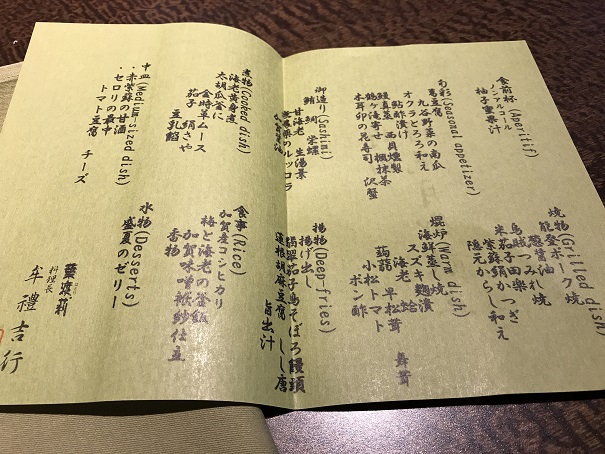 食前杯 (Aperitif)
ノンアルコール
柚子蜜果汁
旬彩 (Seasonal appetizer)
九谷野菜の南瓜
オクラとろろ和え
鮎酢漬け
鰻真菜 西貝燻製
鶴ヶ滝寄せ 楓抹茶
木耳卯の花寿司 沢蟹
御造り (Sashimi)
鮪 鯛 栄螺
甘海老 生湯葉
のルッコラ
煮物 (Cooked dish)
海老黄身煮
太胡瓜釜に
金時草ムース
茄子 絹さや
豆乳餡
中皿 (Medium-sized dish)
・赤紫蘇の甘酒
・セロリの最中
トマト豆腐 チーズ
焼物 (Grilled dish)
能登ポーク焼
葱醤油
烏賊つみれ焼
米茄子田楽
紫蘇絹かつぎ
隠元からし和え
焜炉 (Warm dish)
海鮮蒸し焼
スズキ麹漬
海老 蛤
蒟蒻 早松茸 舞茸
小松トマト
ポン酢
揚物 (Deep-fries)
揚げ出し
翡翠茄子鳥そぼろ饅頭
蓮根胡麻豆腐 しし唐
旨出汁
食事 (Rice)
加賀産コシヒカリ
梅と海老の釜飯
加賀味噌袱紗仕立
香物
水物 (Desserts)
盛夏のゼリー
料理長
牟禮吉行